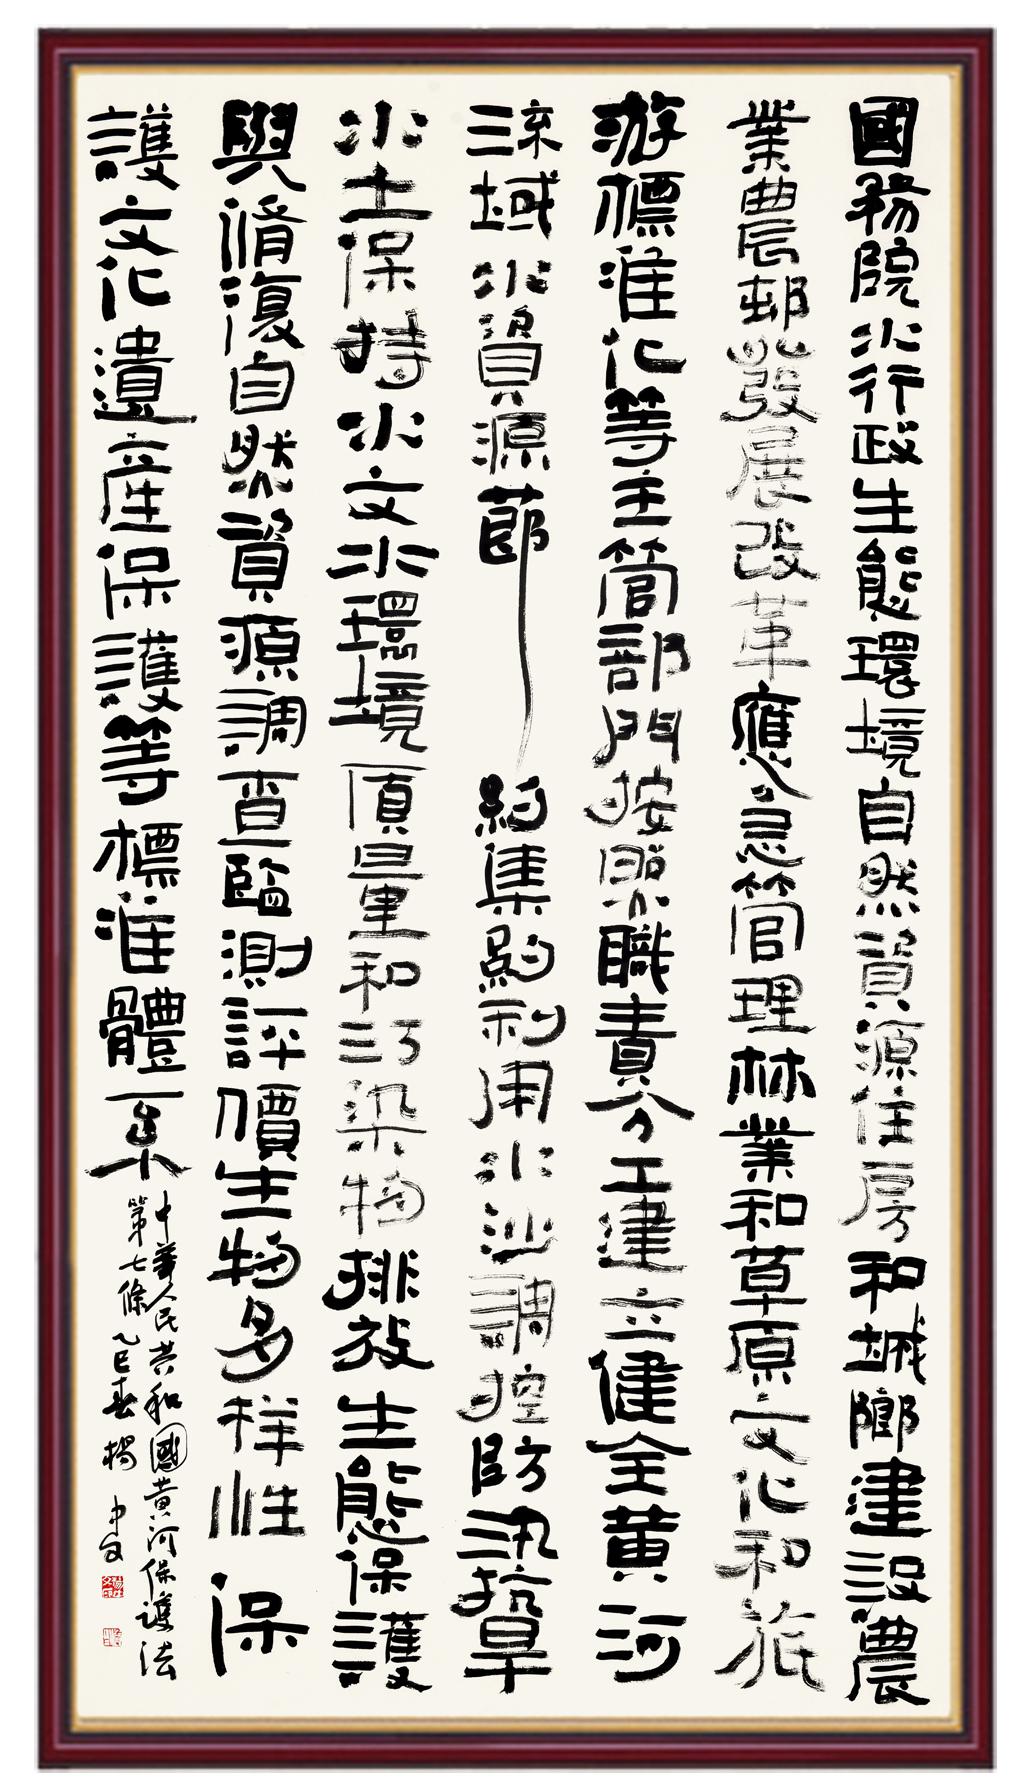 國務院水行政生態環境自然資源住房和城鄉建設農
業農邨發展改革應急管理林業和草原文化和旅
游標准化等主管部門按照職責分工建立健全黃河
流域水資源節約集約利用水沙調控防汛抗旱
水土保持水文水環境質量和污染物排放生態保護
與脩復自然資源調查監測評價生物多樣性保
護文化遺產保護等標准體系
中華人民共和國黃河保護法
第七條乙巳春楊中文